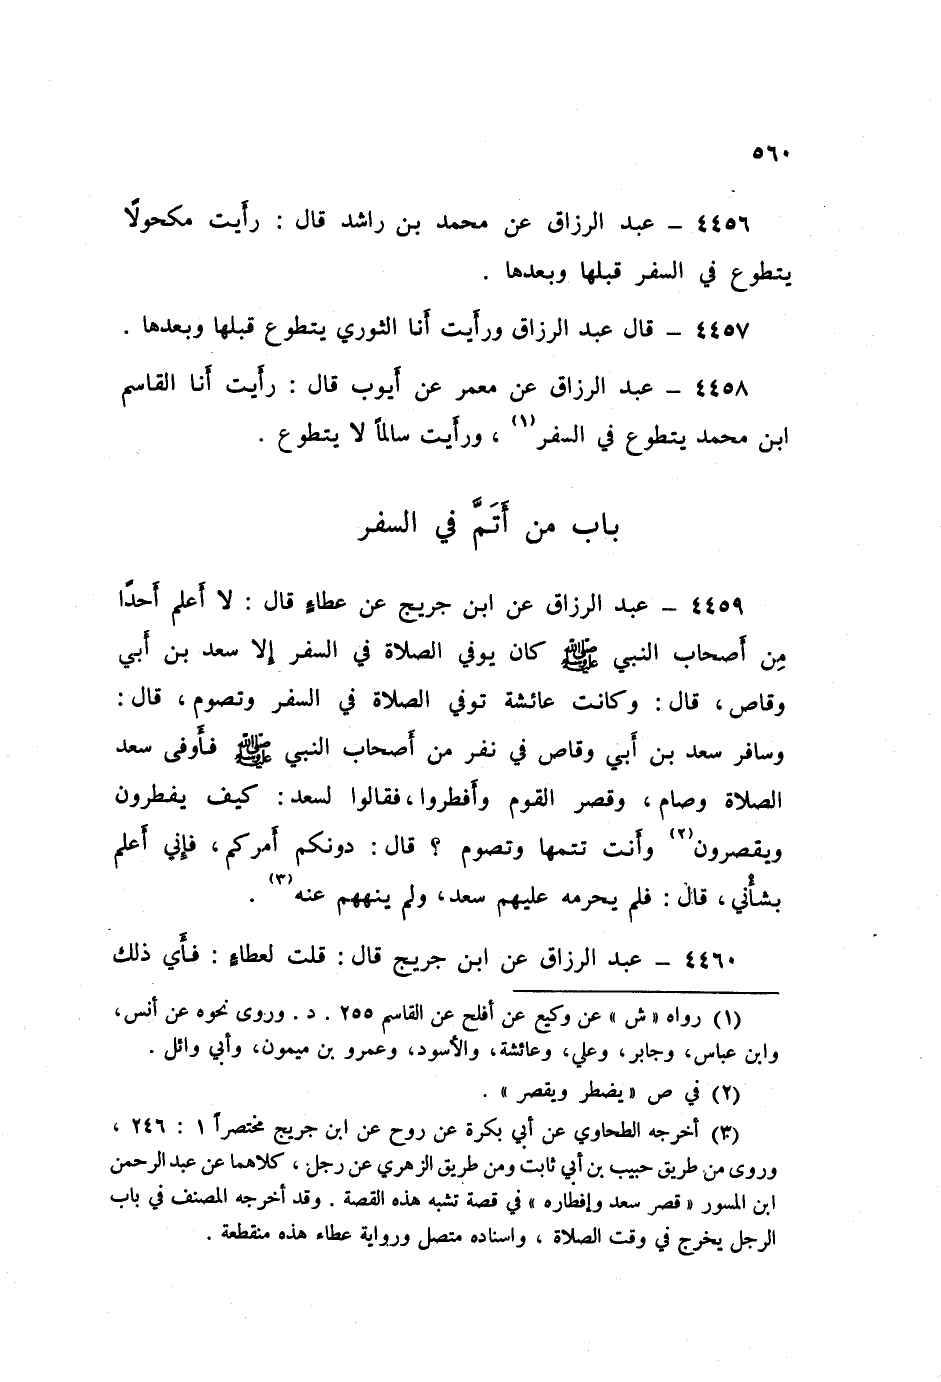 ٥٦٠
٤٤٥٦ – عبد الرزاق عن محمد بن راشد قال : رأَيت مكحولًا
يتطوع في السفر قبلها وبعدها .
٤٤٥٧ – قال عبد الرزاق ورأَيت أَنا الثوري يتطوع قبلها وبعدها .
٤٤٥٨ – عبد الرزاق عن معمر عن أَيوب قال : رأَيت أَنا القاسم
ابن محمد يتطوع في السفر(١) ، ورأَيت سالماً لا يتطوع .
باب من أَتَمَّ في السفر
٤٤٥٩ – عبد الرزاق عن ابن جريج عن عطاءٍ قال : لا أَعلم أَحدًا
مِن أَصحاب النبي ﷺ كان يوفي الصلاة في السفر إلا سعد بن أَبي
وقاص ، قال : وكانت عائشة توفي الصلاة في السفر وتصوم ، قال :
وسافر سعد بن أَبي وقاص في نفر من أَصحاب النبي ﷺ فأَوفى سعد
الصلاة وصام ، وقصر القوم وأَفطروا ، فقالوا لسعد : كيف يفطرون
ويقصرون(٢) وأَنت تتمها وتصوم ؟ قال : دونكم أَمركم ، فإني أَعلم
بشأْني ، قال : فلم يحرمه عليهم سعد ، ولم ينههم عنه(٣) .
٤٤٦٠ – عبد الرزاق عن ابن جريج قال : قلت لعطاءٍ : فأَي ذلك
(١) رواه « ش » عن وكيع عن أفلح عن القاسم ٢٥٥ . د . وروى نحوه عن أنس ،
وابن عباس ، وجابر ، وعلي ، وعائشة ، والأسود ، وعمرو بن ميمون ، وأبي وائل .
(٢) في ص « يضطر ويقصر » .
(٣) أخرجه الطحاوي عن أبي بكرة عن روح عن ابن جريج مختصراً ١ : ٢٤٦ ،
وروى من طريق حبيب بن أبي ثابت ومن طريق الزهري عن رجل ، كلاهما عن عبد الرحمن
ابن المسور « قصر سعد وإفطاره » في قصة تشبه هذه القصة . وقد أخرجه المصنف في باب
الرجل يخرج في وقت الصلاة ، واسناده متصل ورواية عطاء هذه منقطعة .